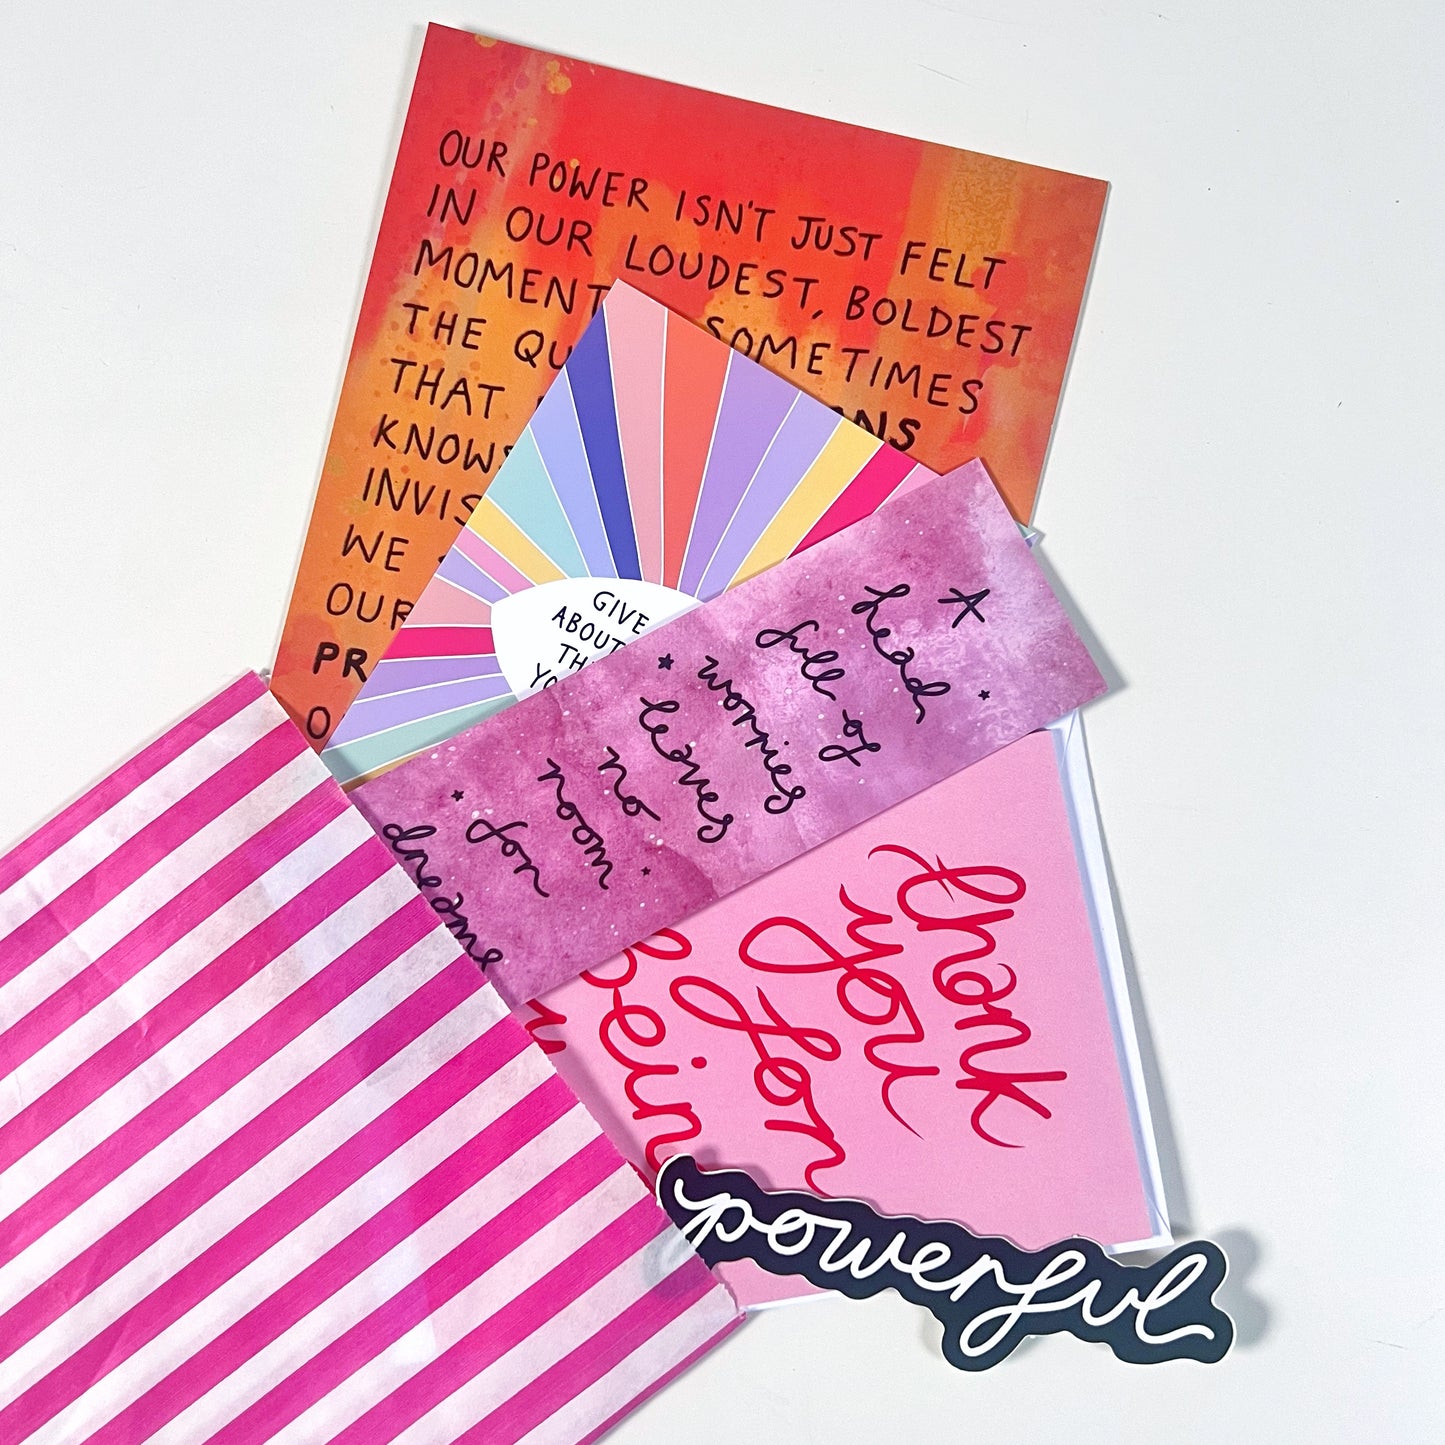 OUR POWER ISN'T JUST FELT
IN OUR LOUDEST, BOLDEST
MOMENT
SOMETIMES
THE QU
THAT
KNOWS
INVIS
WE
OUR
PR
O
GIVE
ABOUT
TH
YO
A
head
full of
worries
leaves
no
room
for
dreams
thank
you
for
Being
powerful